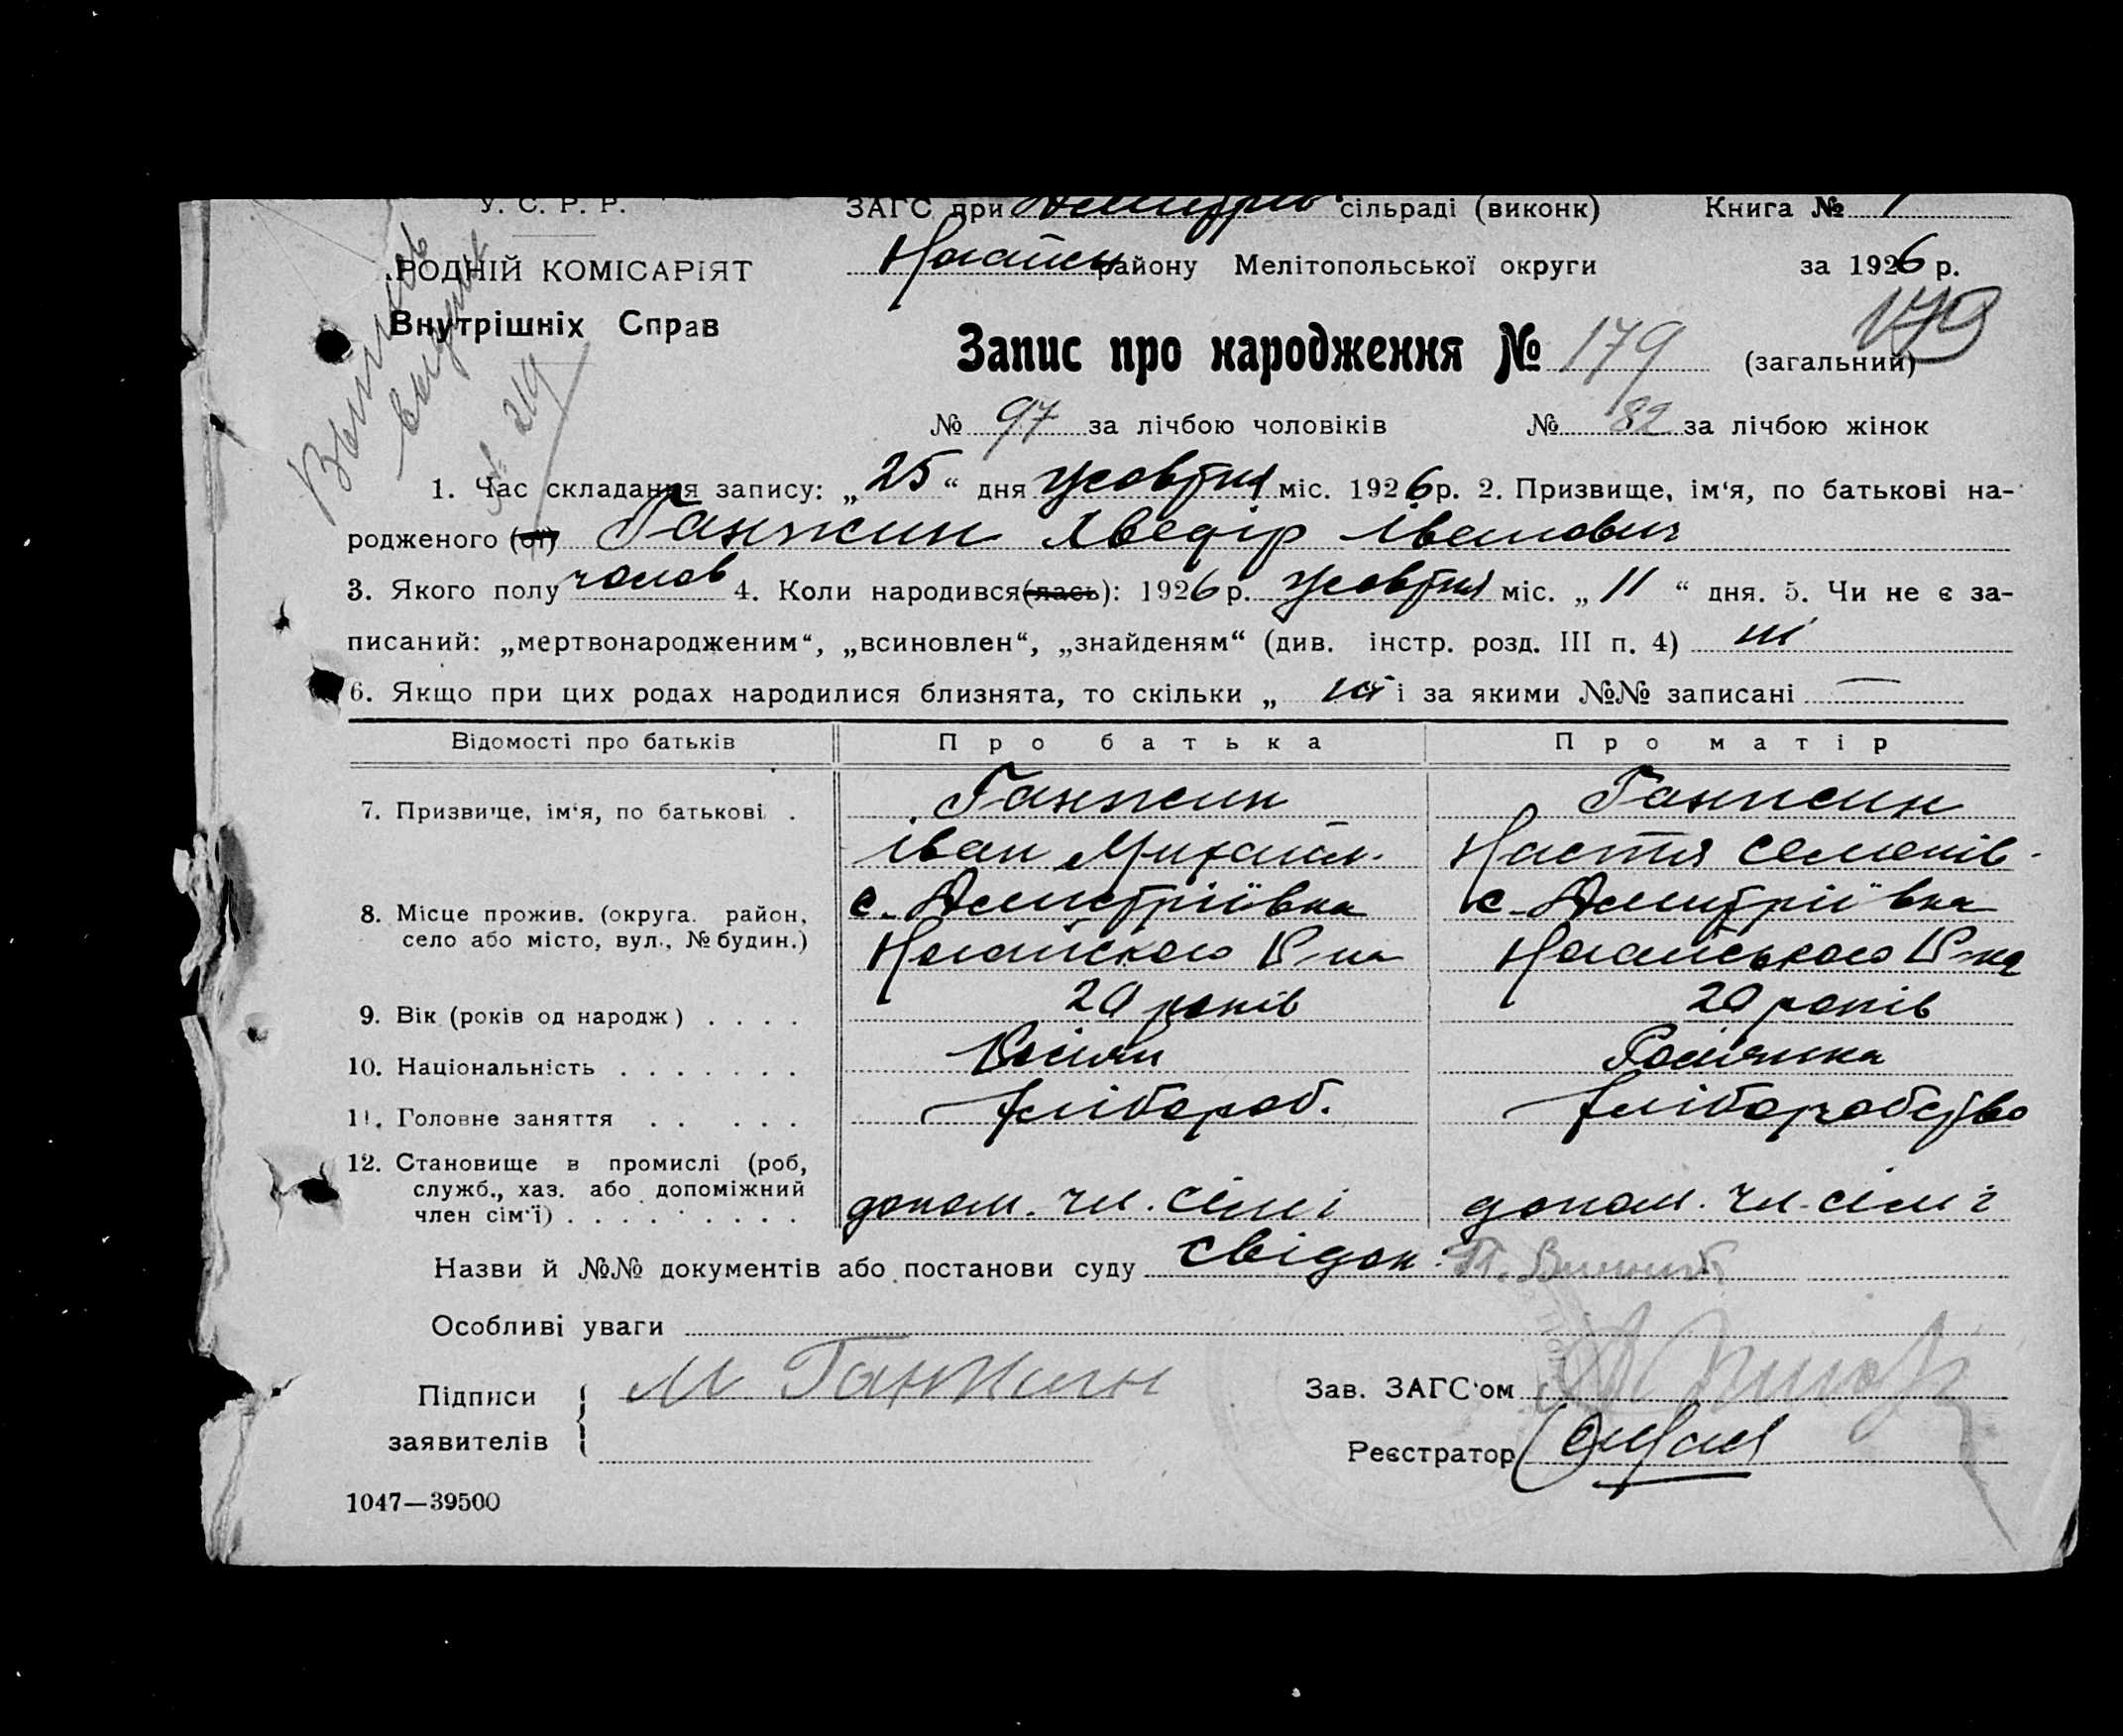 У. С. Р. Р. ЗАГС при Дмитрів сільраді (виконк) Книга № 1
РОДНІЙ КОМІСАРІЯТ Ногайськ району Мелітопольської округи за 1926 р.
Внутрішніх Справ
179
Запис про народження № 179 (загальний)
№ 97 за лічбою чоловіків № 82 за лічбою жінок
№ 219
1. Час складання запису: „25“ дня жовтня міс. 1926 р. 2. Призвище, ім‘я, по батькові на-
родженого (ої) Ганжин Хведір Іванович
3. Якого полу чолов 4. Коли народився(лась): 1926 р. жовтня міс. „11“ дня. 5. Чи не є за-
писаний: „мертвонародженим“, „всиновлен“, „знайденям“ (див. інстр. розд. III п. 4) ні
6. Якщо при цих родах народилися близнята, то скільки „ ні і за якими №№ записані —
Відомості про батьків Про батька Про матір
7. Призвище, ім‘я, по батькові . Ганжин Ганжин
Іван Михайл. Настя Семенів.
8. Місце прожив. (округа. район, с. Дмитріївка с. Дмитріївка
село або місто, вул., № будин.) Ногайского Р-на Ногайського Р-на
9. Вік (років од народж) . . . . 20 років 20 років
10. Національність . . . . . . . Росіян Росіянка
11. Головне заняття . . . . . Хлібороб. Хліборобство
12. Становище в промислі (роб,
служб., хаз. або допоміжний
член сім‘ї) . . . . . . . . . допом. чл. сімї допом. чл. сім ї
Назви й №№ документів або постанови суду Свідок:
Особливі уваги
Підписи М Ганжин Зав. ЗАГС‘ом
заявителів Реєстратор
1047—39500